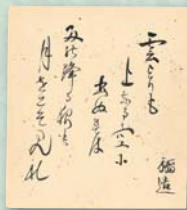 雲よりも
上なる空に
出ぬれは
雨の降る夜も
月をこそ見れ
稲造